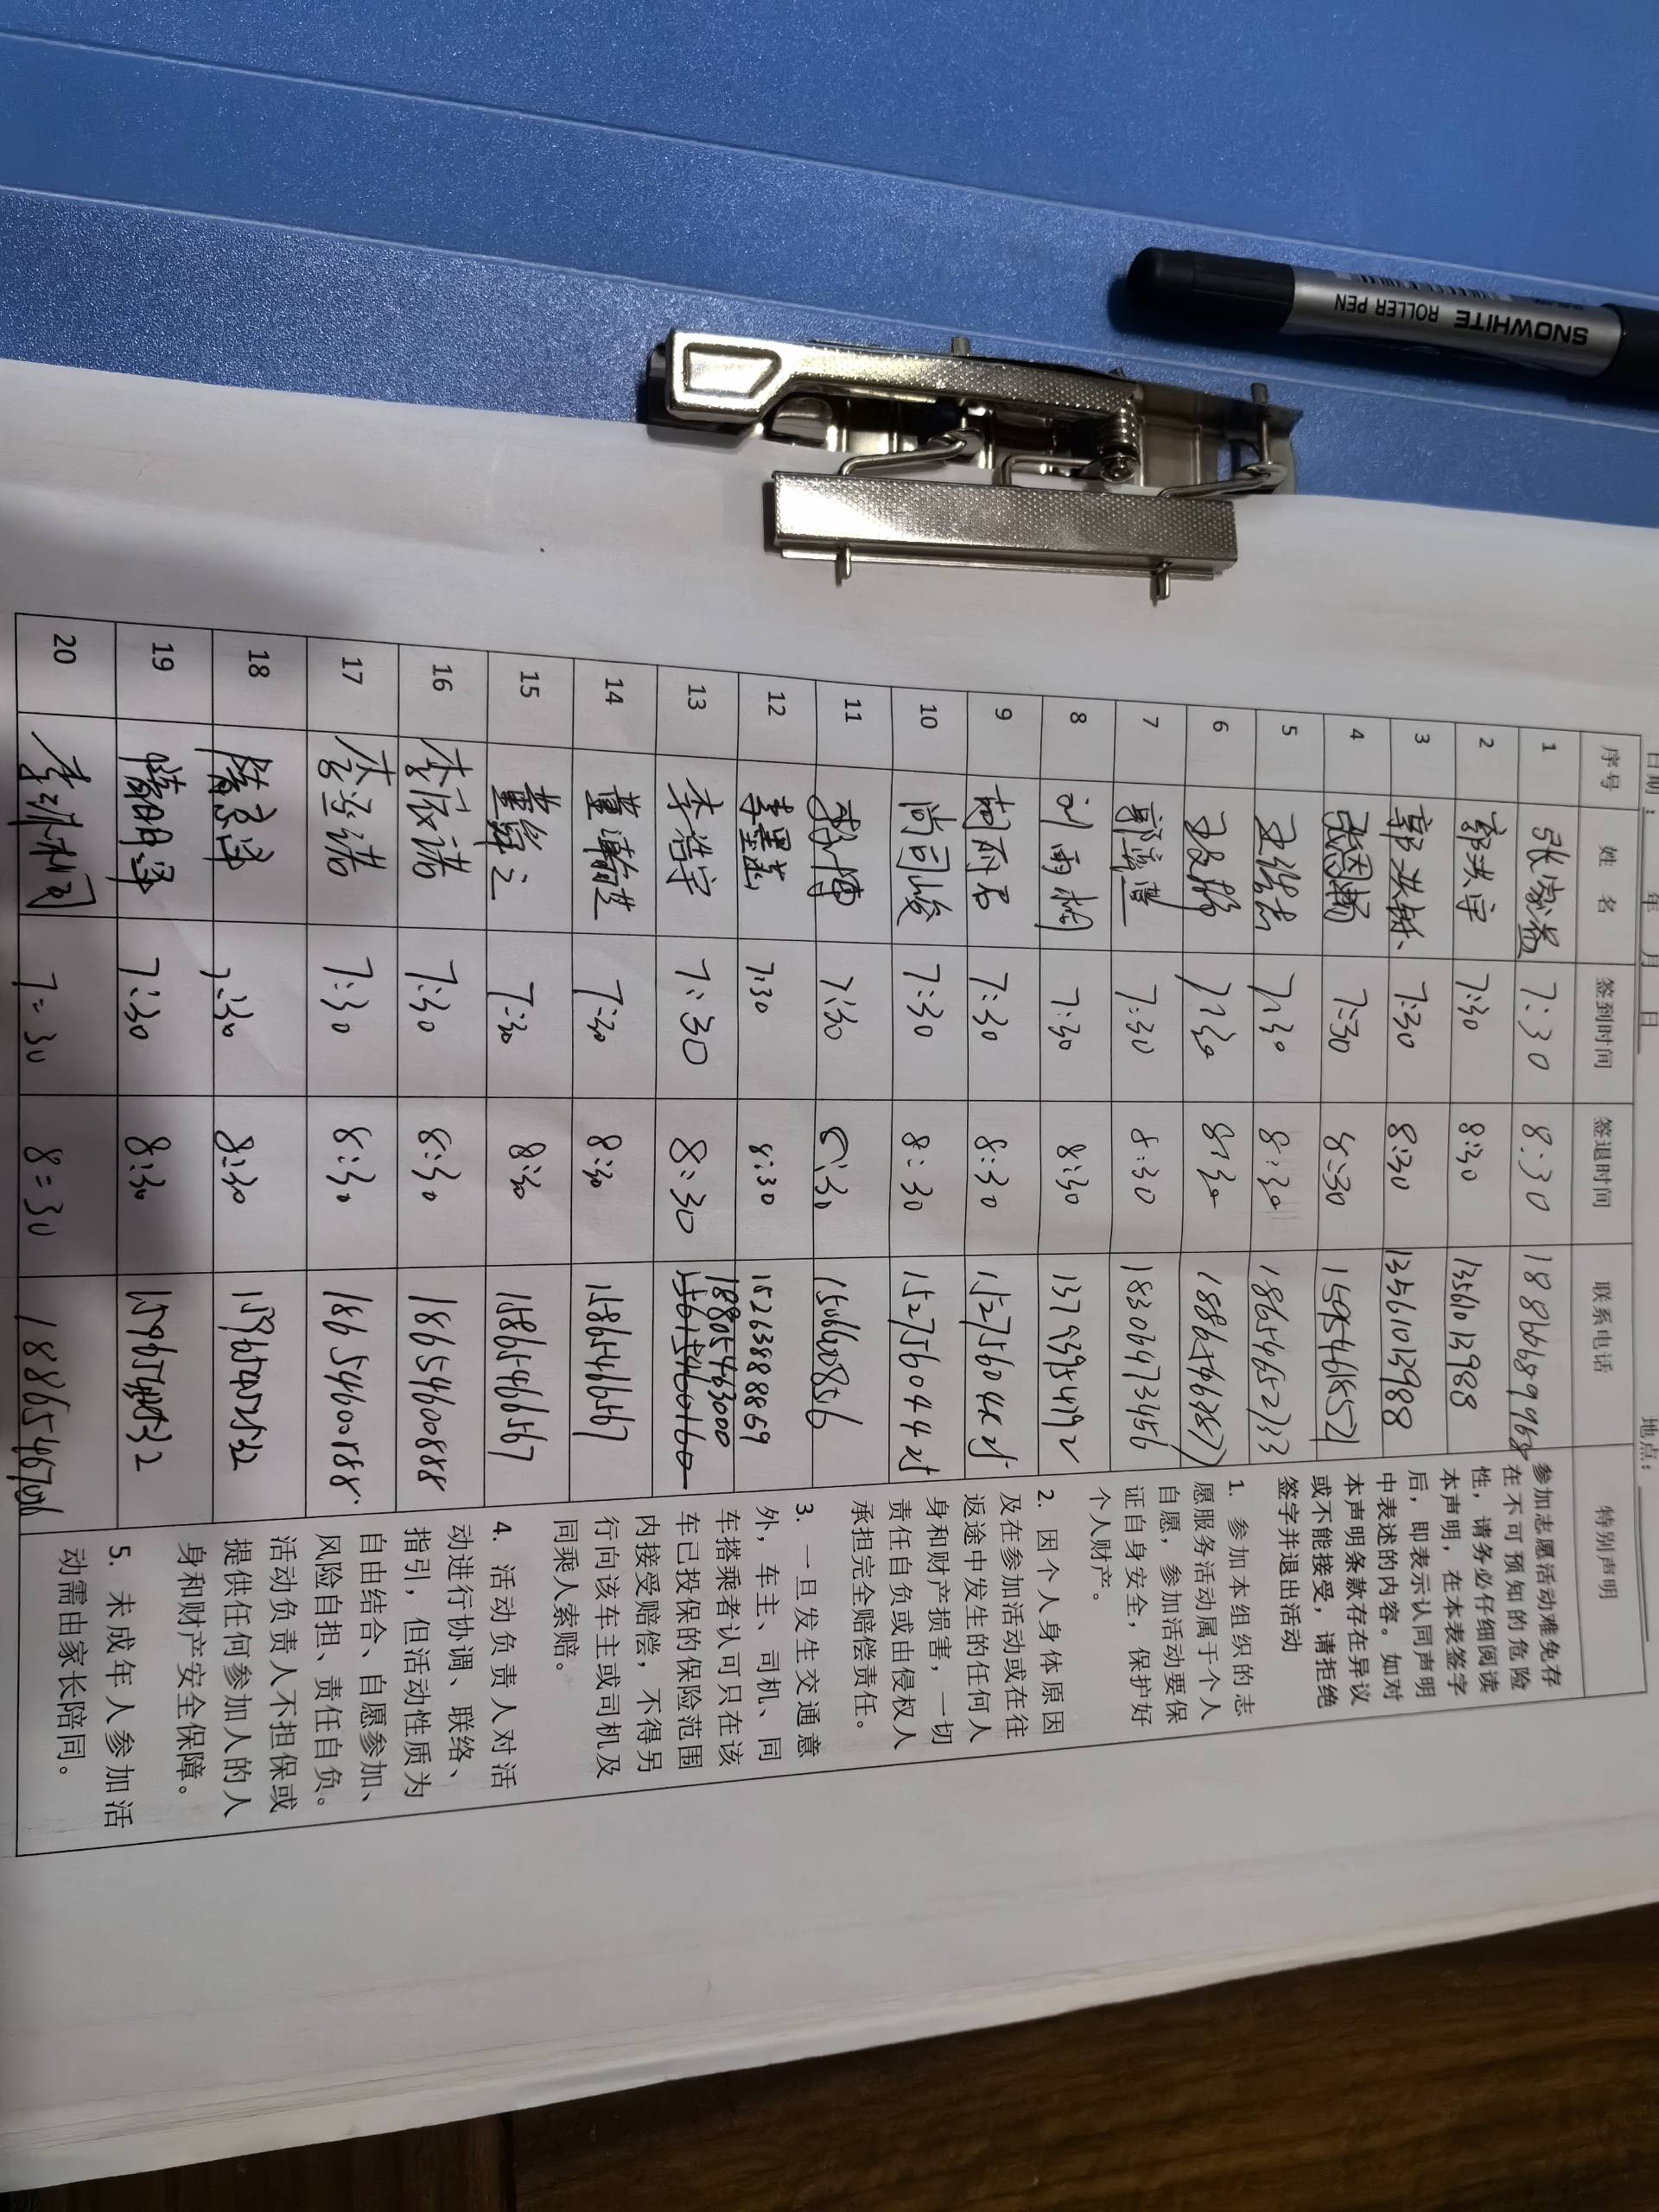 SNOWHITE ROLLER PEN
日期： 年 月 日 地点：
序号 姓 名 签到时间 签退时间 联系电话 特别声明
1 张家益 7:30 8:30 18866689968
2 郭洪宇 7:30 8:30 13561013988
3 郭洪 7:30 8:30 13561013988
4 7:30 8:30 15954618571
5 7:30 8:30 18654652733
6 7:30 8:30
7 郭 7:30 8:30 18306473456
8 刘雨桐 7:30 8:30
9 7:30 8:30
10 尚司峻 7:30 8:30
11 7:30 8:30 15066008556
12 李墨 7:30 8:30 15263888869
13 李浩宇 7:30 8:30 18805463000
14 董瀚 7:30 8:30 15865466567
15 董 之 7:30 8:30 15865466567
16 李辰诺 7:30 8:30 18654600888
17 李 诺 7:30 8:30 18654600188
18 7:30 8:30
19 7:30 8:30
20 李 桐 7:30 8:30
参加志愿活动难免存
在不可预知的危险
性，请务必仔细阅读
本声明，在本表签字
后，即表示认同声明
中表述的内容。如对
本声明条款存在异议
或不能接受，请拒绝
签字并退出活动
1. 参加本组织的志
愿服务活动属于个人
自愿，参加活动要保
证自身安全，保护好
个人财产。
2. 因个人身体原因
及在参加活动或在往
返途中发生的任何人
身和财产损害，一切
责任自负或由侵权人
承担完全赔偿责任。
3. 一旦发生交通意
外，车主、司机、同
车搭乘者认可只在该
车已投保的保险范围
内接受赔偿，不得另
行向该车主或司机及
同乘人索赔。
4. 活动负责人对活
动进行协调、联络、
指引，但活动性质为
自由结合、自愿参加、
风险自担、责任自负。
活动负责人不担保或
提供任何参加人的人
身和财产安全保障。
5. 未成年人参加活
动需由家长陪同。